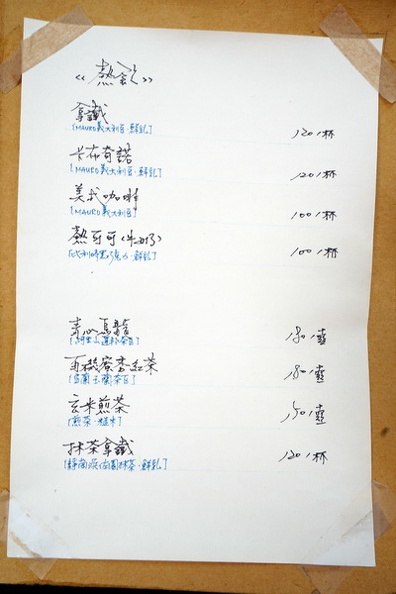 《熱飲》
拿鐵 120/杯
[MAURO義大利豆·鮮乳]
卡布奇諾 120/杯
[MAURO義大利豆·鮮乳]
美式咖啡 100/杯
[MAURO義大利豆]
熱可可(牛奶) 100/杯
[比利時黑巧克力·鮮乳]
青心烏龍 180/壺
蜜香紅茶 180/壺
玄米煎茶 150/壺
[煎茶·糙米]
抹茶拿鐵 120/杯
抹茶·鮮乳]